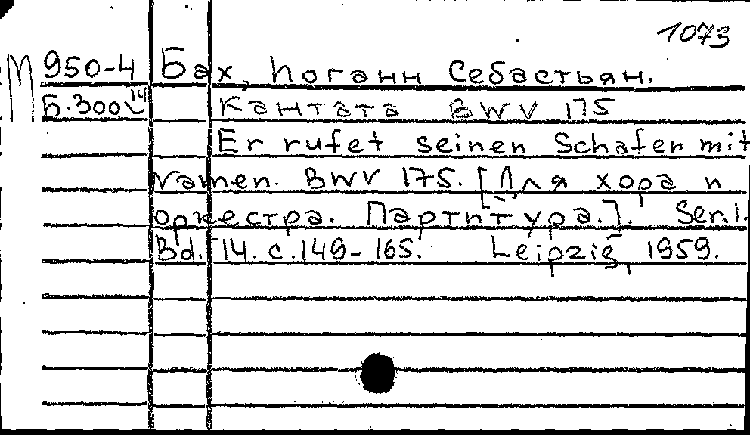 1073
М 950-4 Бах, Иоганн Себастьян.
Б.300 14 Кантата BWV 175
Er rufet seinen Schafen mit
Namen. BWV 175. [Для хора и
оркестра. Партитура.]. Ser.I.
Bd. 14. с.149-165. Leipzig, 1959.